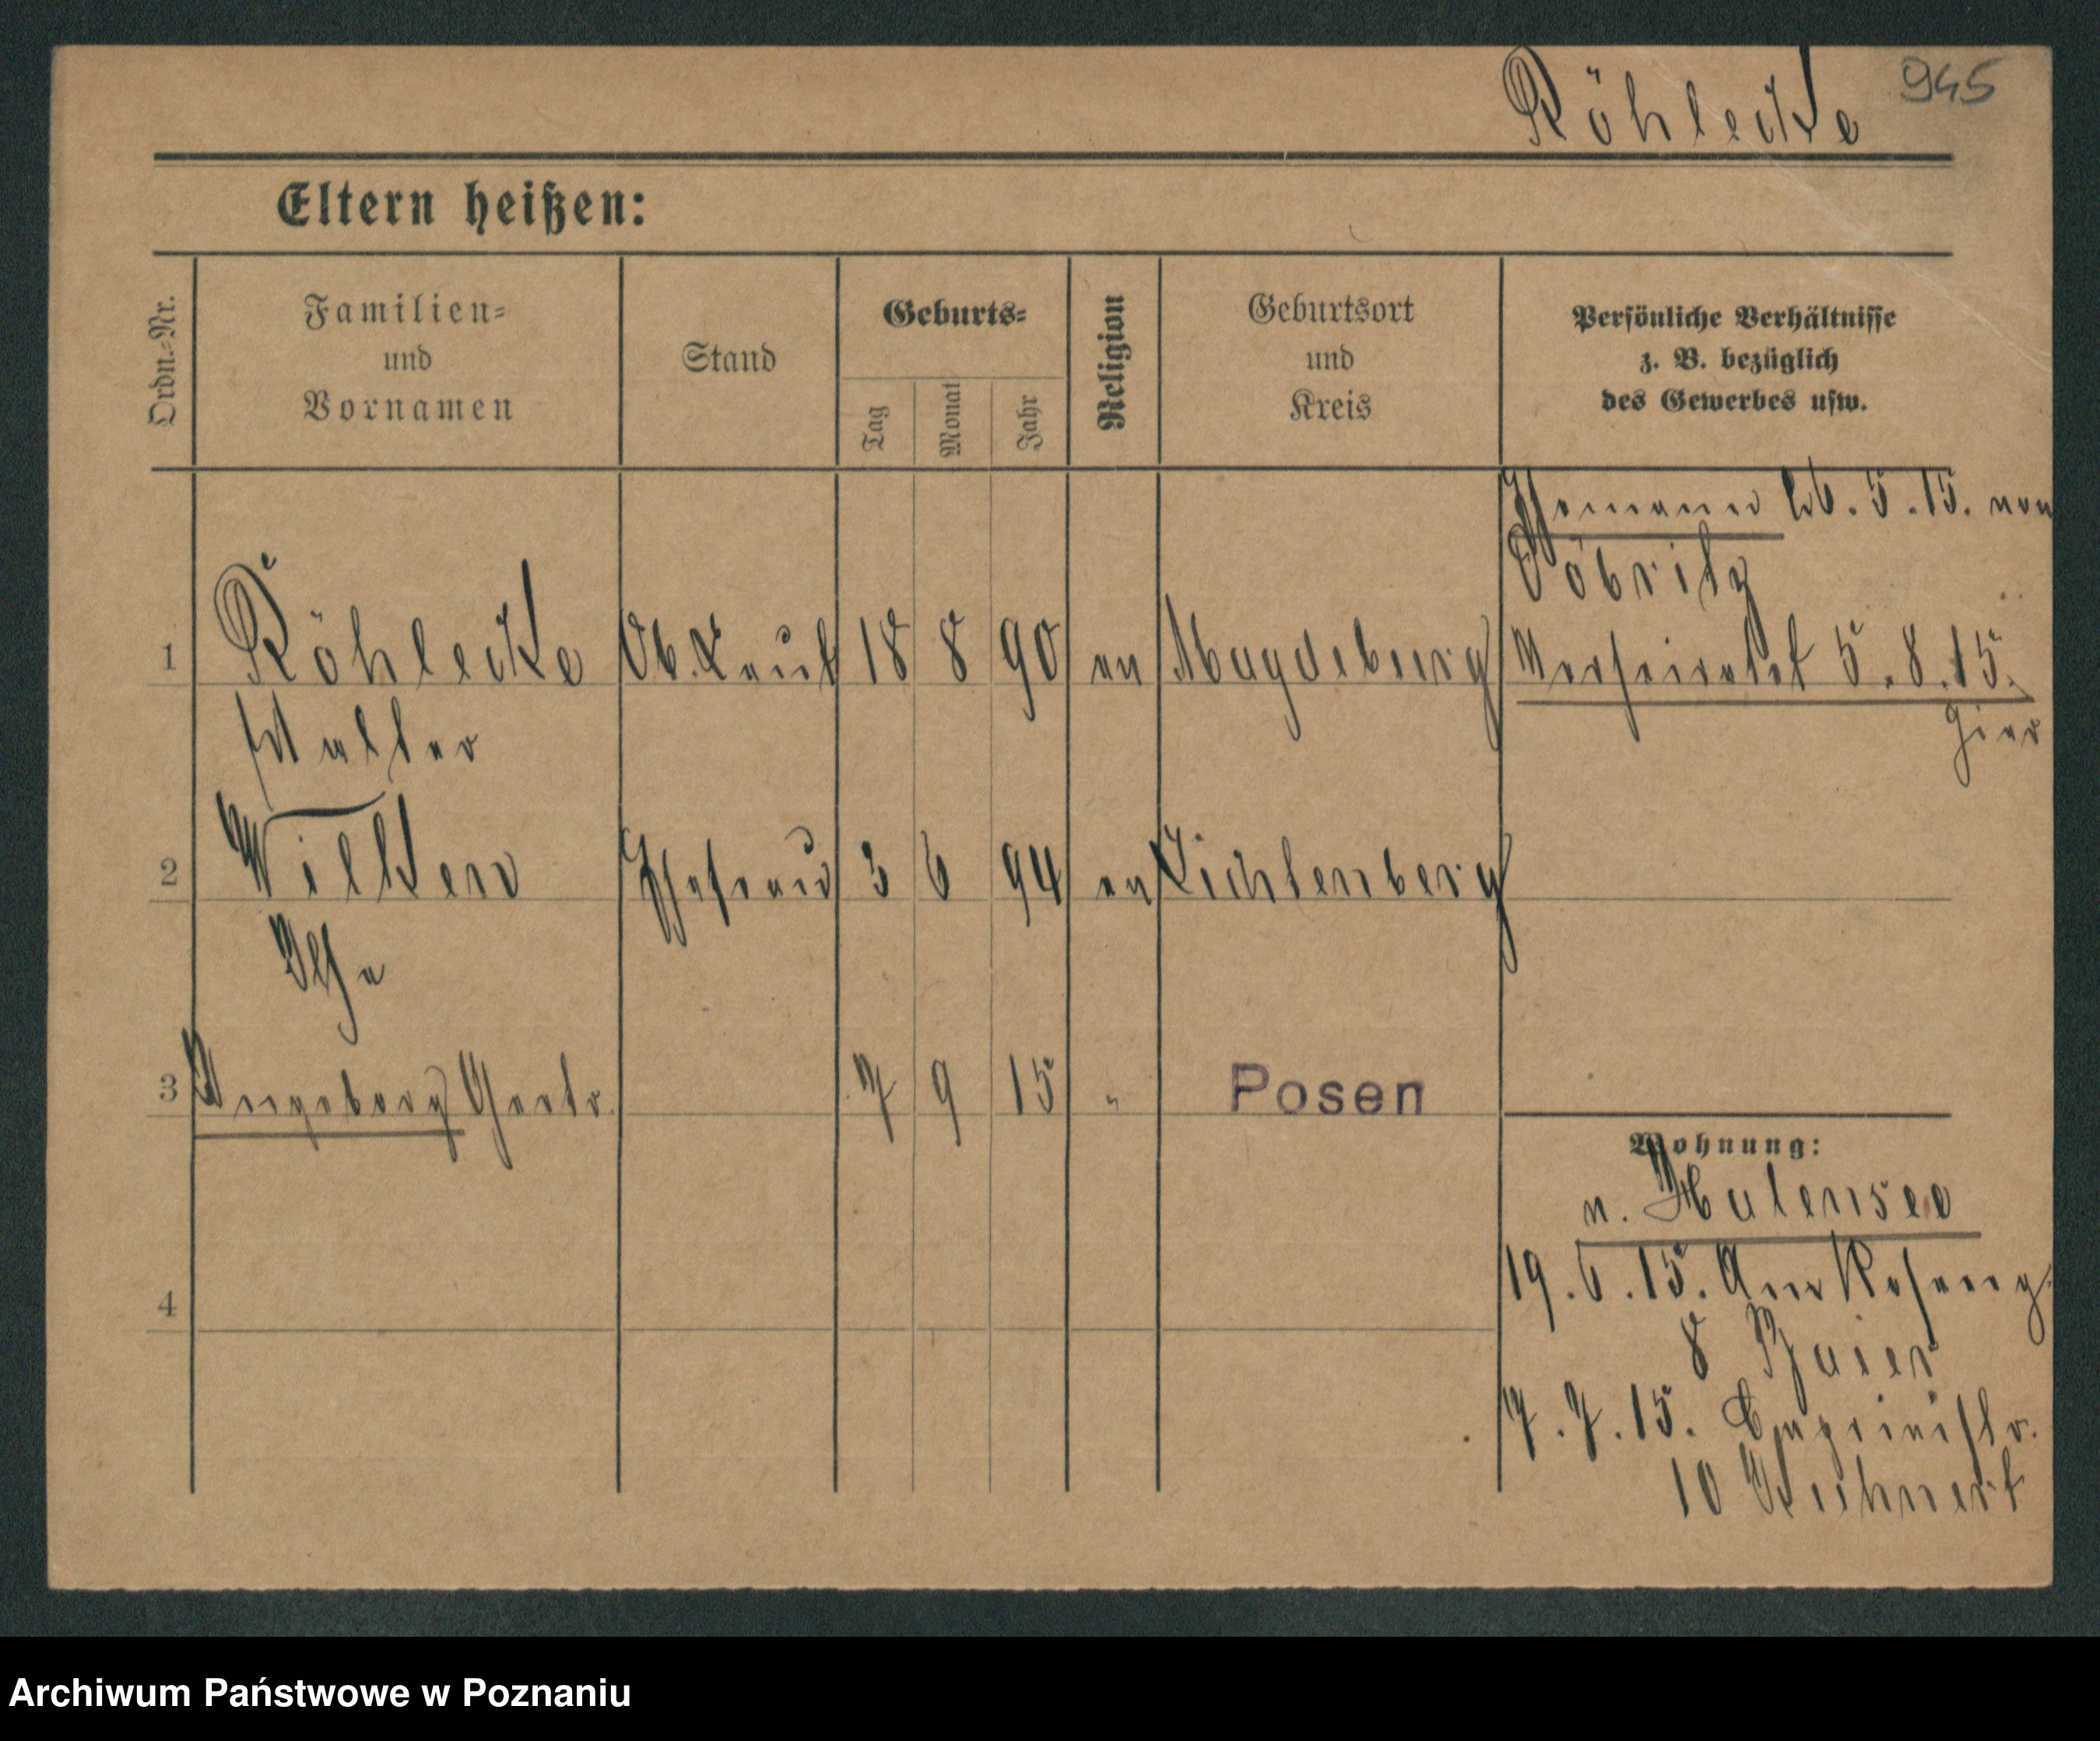 Röhlecke 945
Eltern heißen:
Ordn.-Nr.
Familien-
und
Vornamen
Stand
Geburts-
Tag
Monat
Jahr
Religion
Geburtsort
und
Kreis
Persönliche Verhältnisse
z. B. bezüglich
des Gewerbes usw.
Ehemann 26. 5. 15. von
Döbritz
1 Röhlecke Ob. Leut 18 8 90 ev Magdeburg Verheiratet 5. 8. 15.
hier
Walter
2 Wilken Ehefrau 3 6 94 ev Lichtenberg
Ilse
3 Ingeborg Gertr. 7 9 15 " Posen
Wohnung:
n. Halensee
4
19. 6. 15. Am Roseng.
8 Baier
7. 7. 15. Caprivistr.
10 Kuhnert
Archiwum Państwowe w Poznaniu